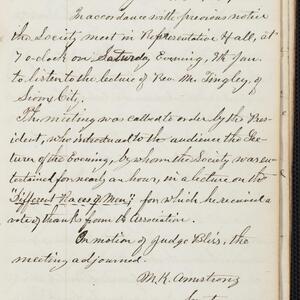 In accordance with previous notice
the Society meet in Representative Hall, at
7 o'clock on Saturday Evening, 9th Jan.
to listen to the lecture of Rev. Mr. Tingley, of
Sioux City,
The meeting was called to order by the Pres-
ident, who introduced to the audience the Lec-
turer of the Evening, by whom the Society was en-
tertained for nearly an hour, in a lecture on the
"Different Races of Men," for which he received a
vote of thanks from the Association.
On motion of Judge Bliss, the
meeting adjourned.
M. K. Armstrong